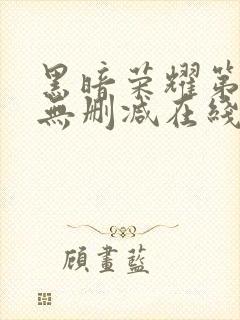 黑暗荣耀第
無删减在綫
顧畫藍